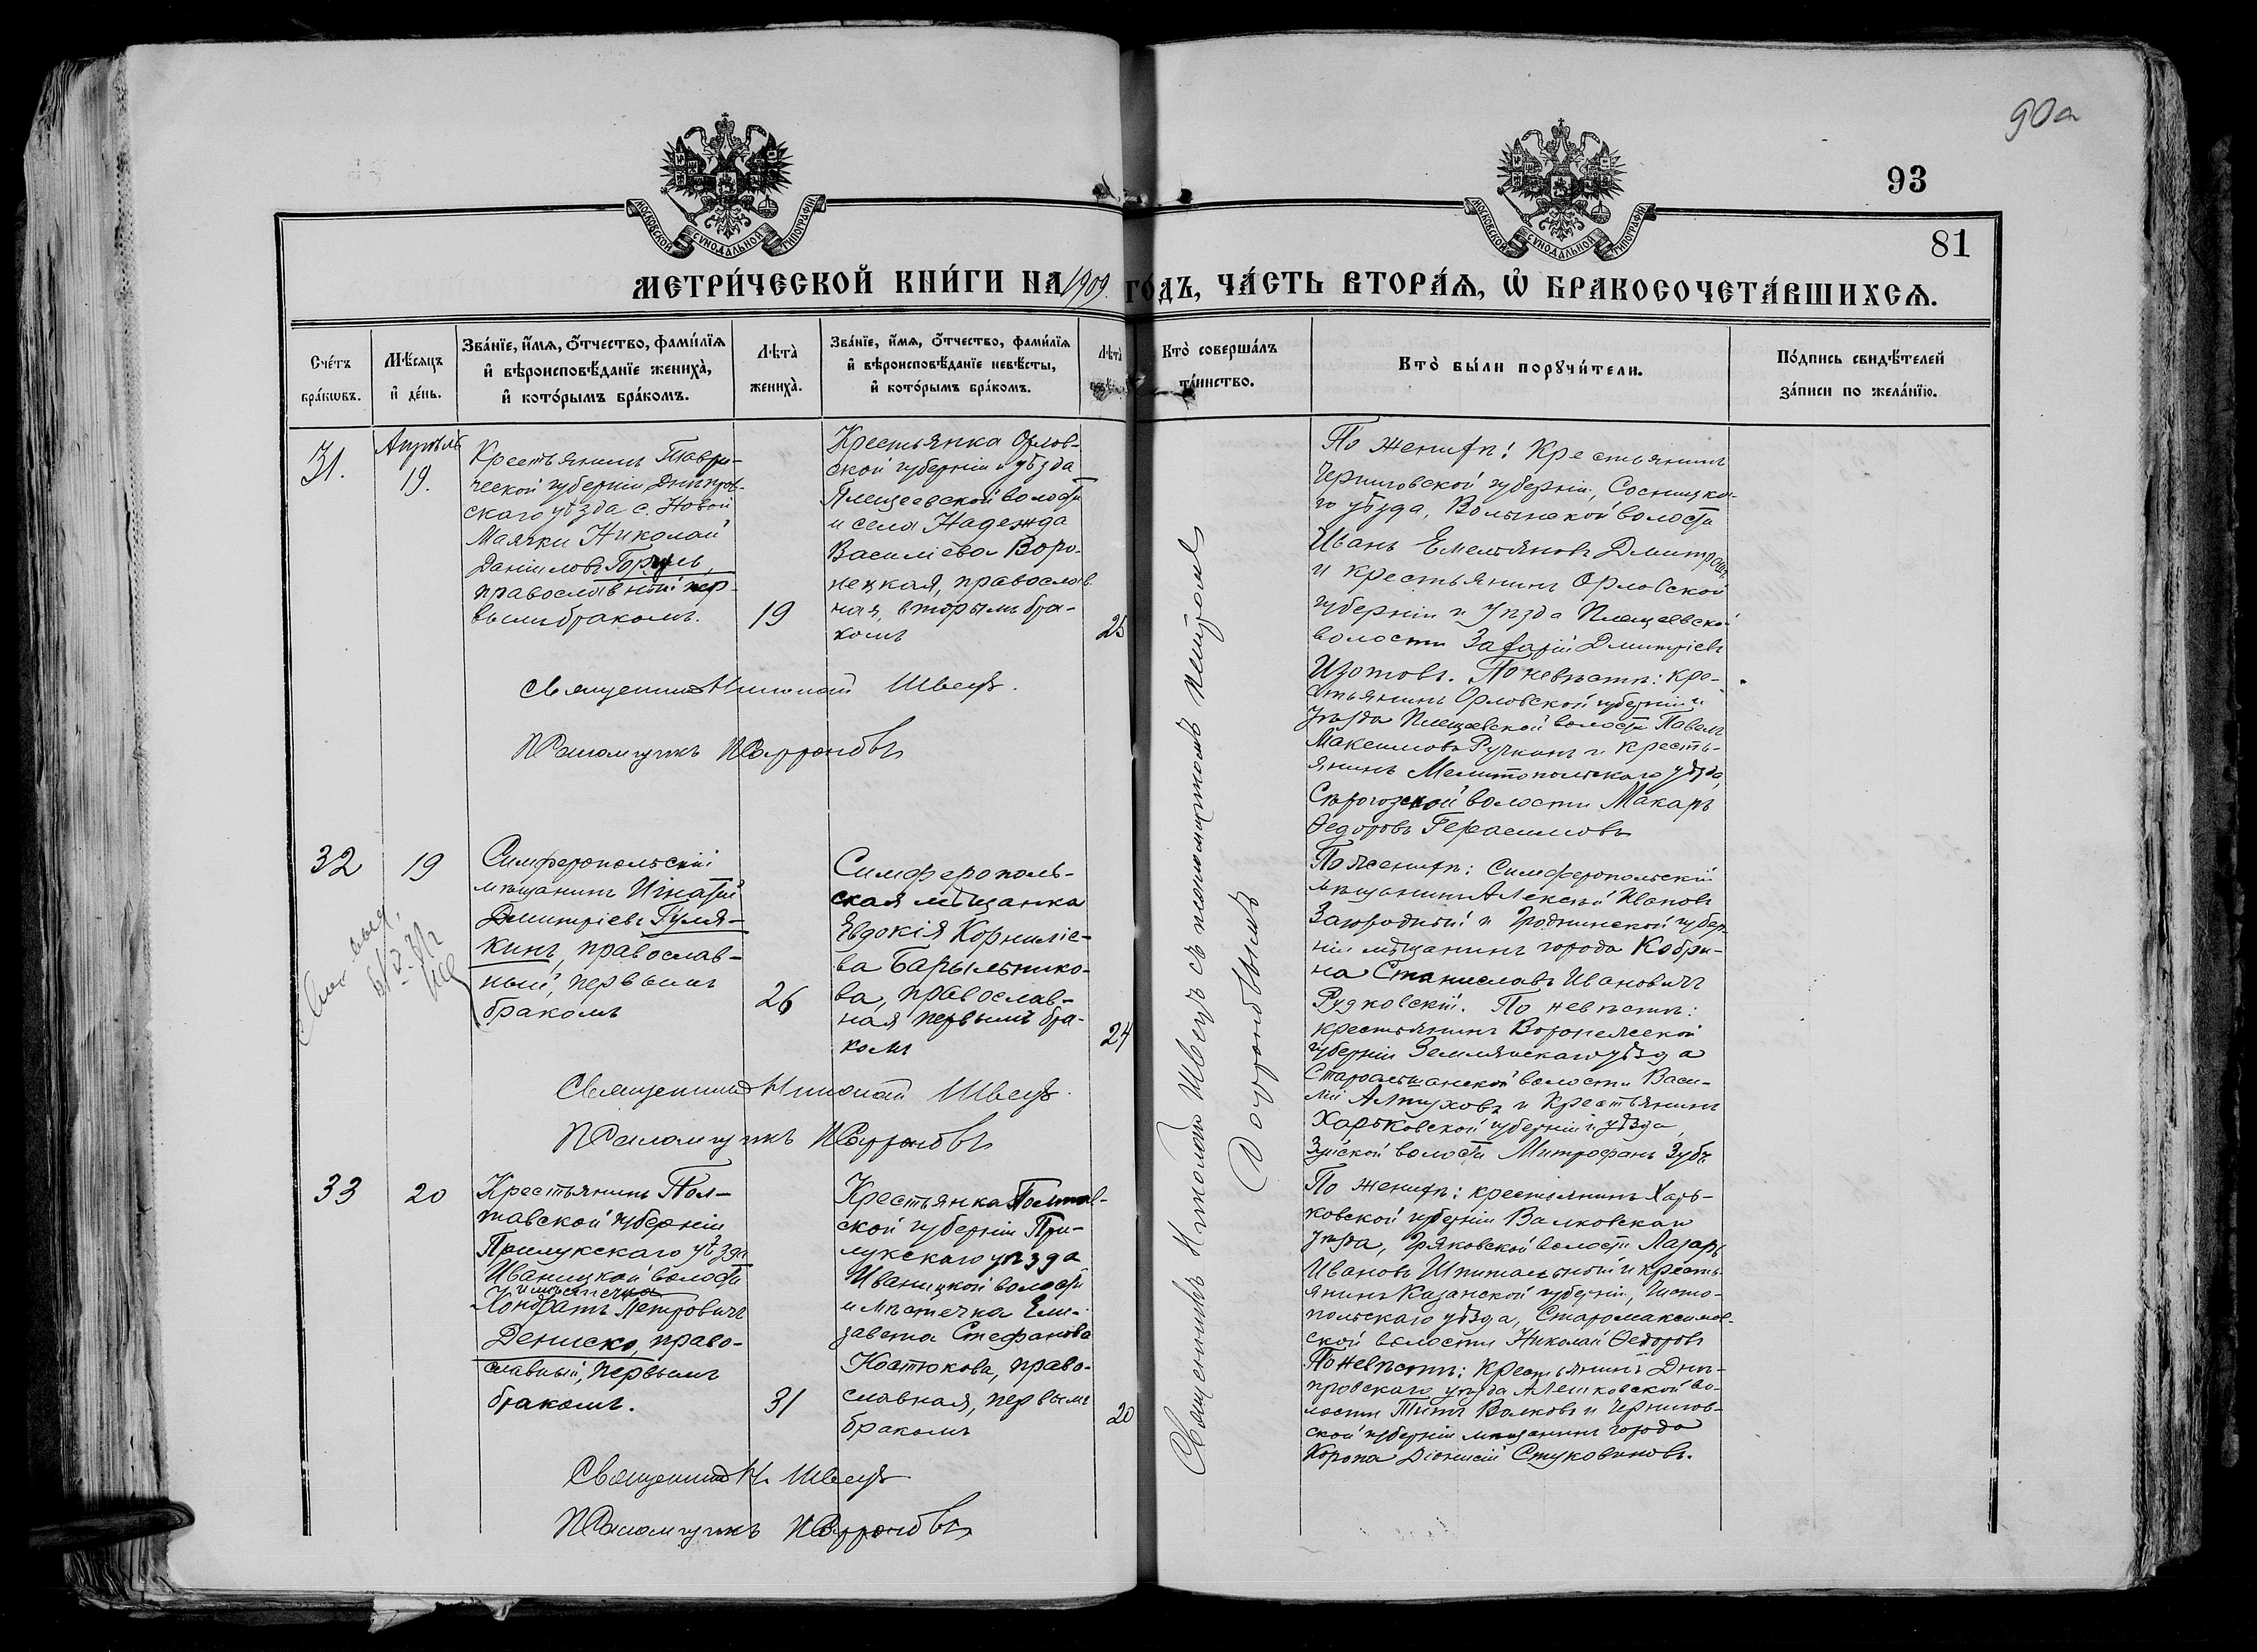 90а
93
81
МОСКОВСКОЙ СѴНОДАЛЬНОЙ ТИПОГРАФІИ
МОСКОВСКОЙ СѴНОДАЛЬНОЙ ТИПОГРАФІИ
МЕТРИ́ЧЕСКОЙ КНИ́ГИ НА 1909 ГО́ДЪ, ЧА́СТЬ ВТОРА́Ѧ, Ѽ БРАКОСОЧЕТА́ВШИХСѦ.
Сче́тъ
бра́кѡвъ.
Мѣ́сяцъ
и҆ де́нь.
Зва́нїе, и҆́мѧ, ѻ҆́тчество, фами́лїѧ
и҆ вѣроисповѣ́данїе жениха̀,
и҆ кото́рымъ бра́комъ.
Лѣта̀
жениха̀.
Зва́нїе, и҆́мѧ, ѻ҆́тчество, фами́лїѧ
и҆ вѣроисповѣ́данїе невѣ́сты,
и҆ кото́рымъ бра́комъ.
Лѣта̀
Кто̀ соверша́лъ
та́инство.
Кто̀ бы́ли порꙋчи́тели.
По́дпись свидѣ́телей
за́писи по жела́нїю.
31.
Апрѣль
19.
Крестьянинъ Таври-
ческой губерніи Днѣпров-
скаго уѣзда с. Новой
Маячки Николай
Даніиловъ
православный пер-
вымъ бракомъ.
19
Крестьянка Орлов-
ской губерніи и уѣзда
Плещеевской волости
и села Надежда
Василіева Воро-
нецкая, православ
ная, вторымъ бра-
комъ
25
По женихѣ: Крестьянинъ
Черниговской губерніи, Сосницка-
го уѣзда, Волынской волости
Иванъ Емельяновъ
и крестьянинъ Орловской
губерніи и уѣзда Плещеевской
волости Захарій Дмитріевъ
Изотовъ. По невѣстѣ: кре-
стьянинъ Орловской губерніи и
уѣзда Плещеевской волости Павелъ
Максимовъ Ручкинъ и кресть-
янинъ Мелитопольскаго уѣзда,
Сѣрогозской волости Макаръ
Ѳедоровъ Герасимовъ
Священникъ Николай Швецъ.
Псаломщикъ
32
19
Симферопольскій
мѣщанинъ Игнатій
Дмитріевъ Гуля-
кинъ, православ-
ный, первымъ
бракомъ
26
Симферополь-
ская мѣщанка
Евдокія Корниліе-
ва Барыльнико-
ва, православ-
ная первымъ бра-
комъ
24
По женихѣ: Симферопольскій
мѣщанинъ Алексѣй Ивановъ
Загородный и Гродненской губер-
ніи мѣщанинъ города Кобри-
на Станиславъ Ивановичъ
Рудковскій. По невѣстѣ:
крестьянинъ Воронежской
губерніи Землянскаго уѣзда
Староольшанской волости Васи-
лій Алтуховъ и Крестьянинъ
Харьковской губерніи и уѣзда,
волости Митрофанъ Зубъ
Священникъ Николай Швецъ.
Псаломщикъ
33
20
Крестьянинъ Пол-
тавской губерніи
Прилукскаго уѣзда
Иваницкой волости
и мѣстечка
Кондратъ Петровичъ
Дениско, право-
славный, первымъ
бракомъ.
31
Крестьянка Полтав-
ской губерніи При-
лукскаго уѣзда
Иваницкой волости
и мѣстечка Ели-
завета Стефанова
Костюкова, право-
славная, первымъ
бракомъ
20
По женихѣ: крестьянинъ Харь-
ковской губерніи Валковскаго
уѣзда, волости Лазарь
Ивановъ Шпитальный и кресть-
янинъ Казанской губерніи, Чисто-
польскаго уѣзда, Старомаксимов-
ской волости Николай Ѳедоровъ
По невѣстѣ: Крестьянинъ Днѣ-
провскаго уѣзда Алешковской во-
лости Титъ Валковъ и Чернигов-
ской губерніи мѣщанинъ города
Коропа Діонисій
Священникъ Н. Швецъ
Псаломщикъ
Священникъ Николай Швецъ съ псаломщикомъ